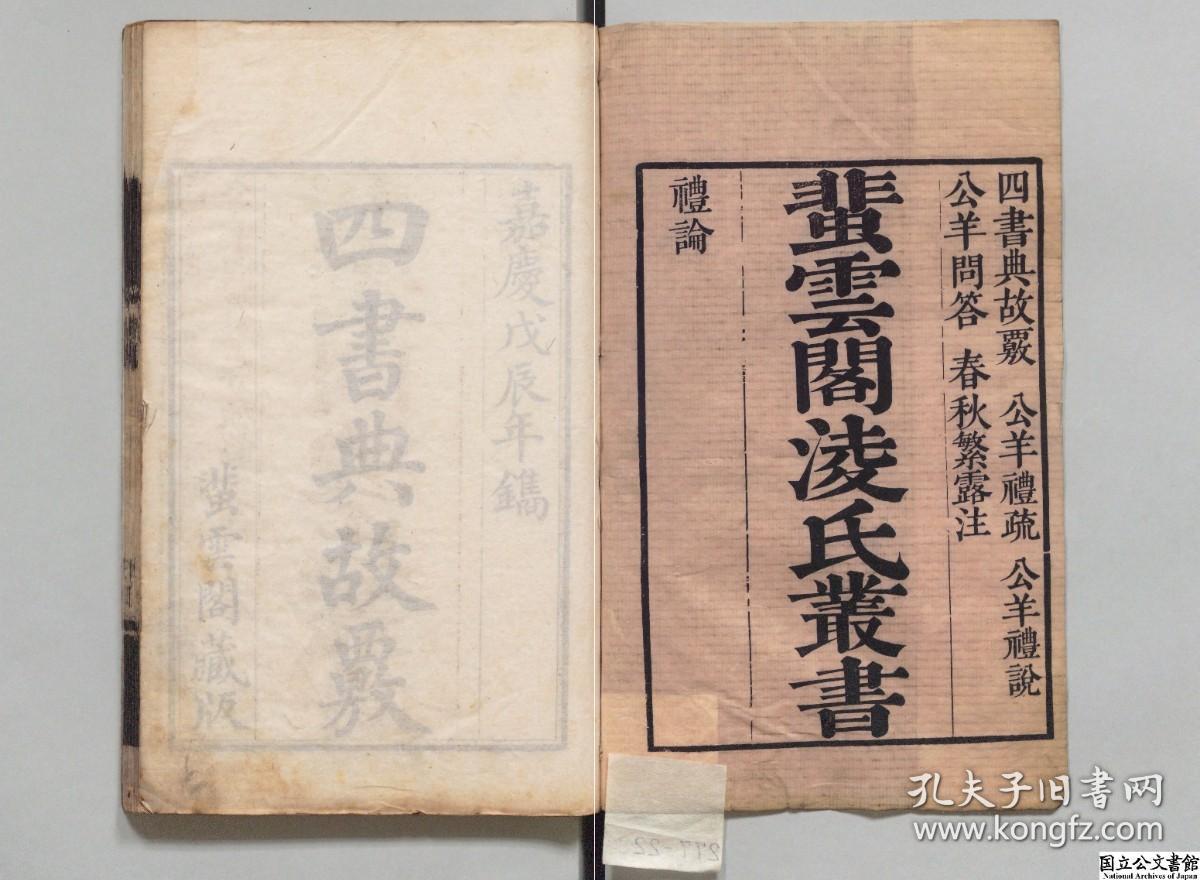 四書典故覈 公羊禮疏 公羊禮說
公羊問答 春秋繁露注
蜚雲閣淩氏叢書
禮論
嘉慶戊辰年鐫
四書典故覈
蜚雲閣藏版
277-22
孔夫子旧书网
www.kongfz.com
国立公文書館
National Archives of Japan